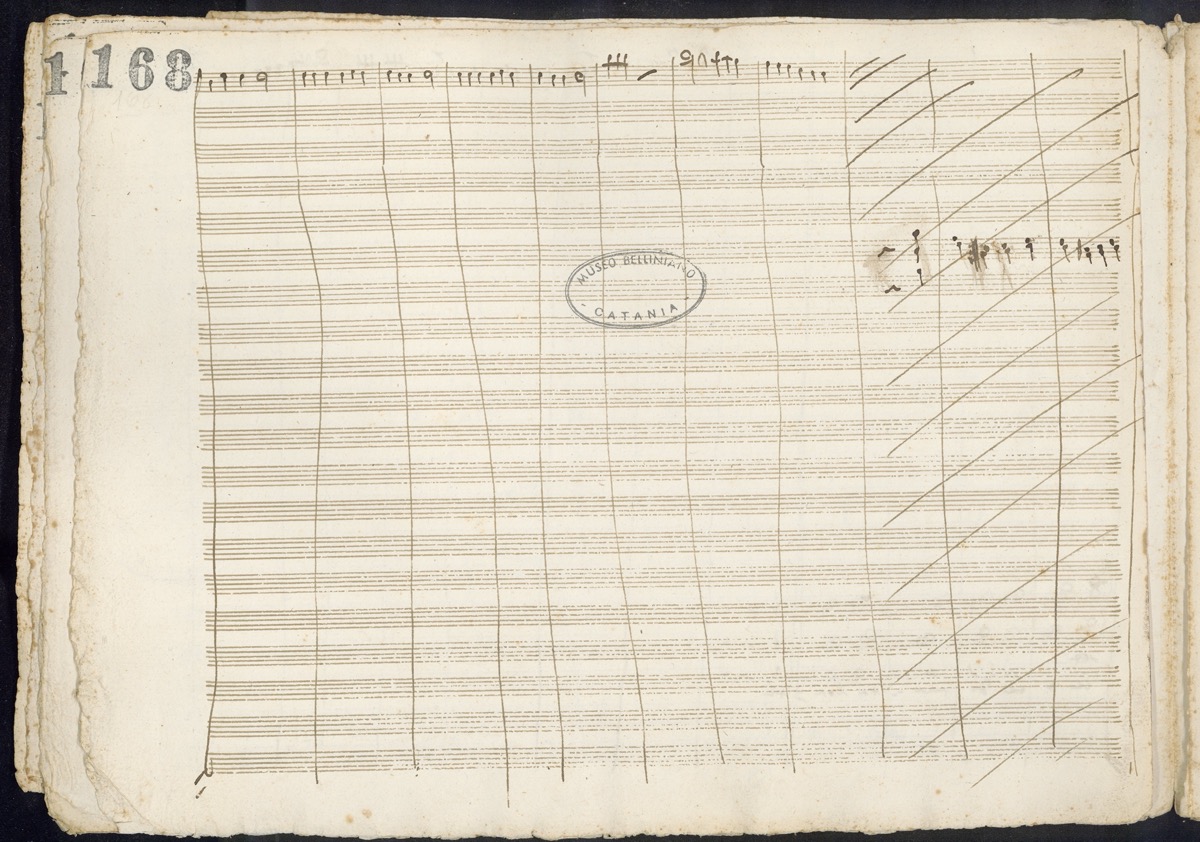 1 168
MUSEO BELLINIANO
- CATANIA -